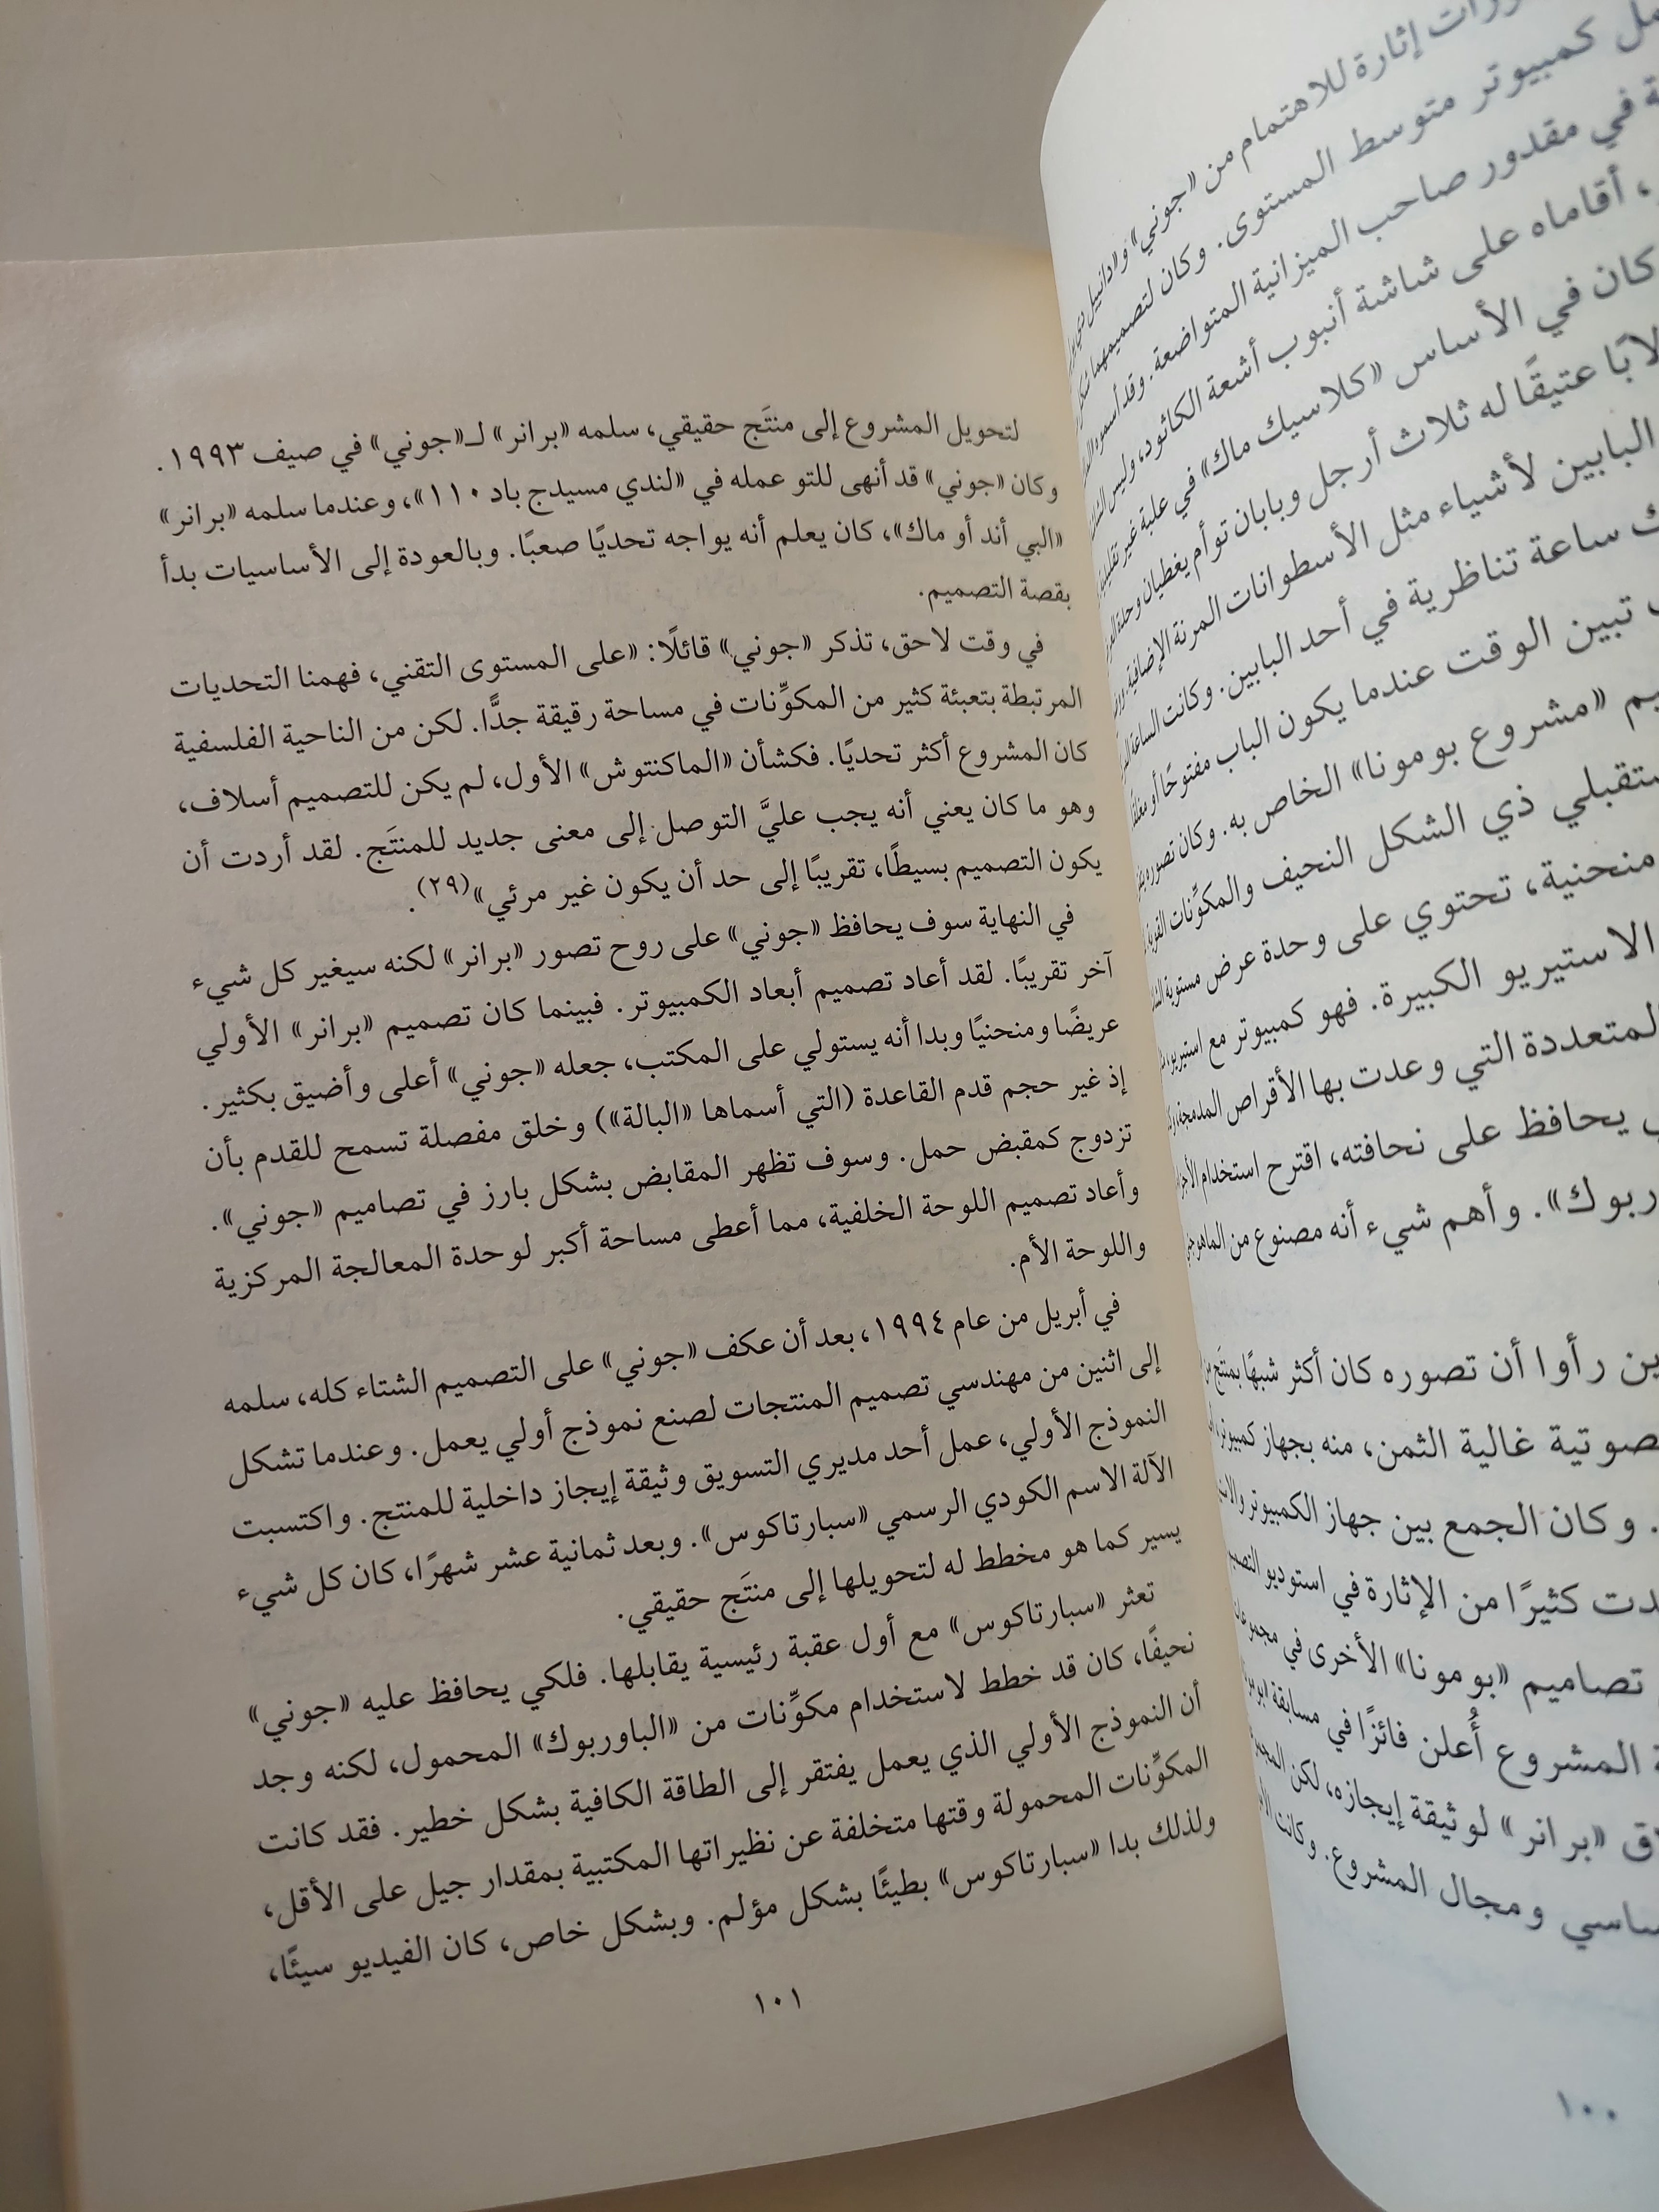 ورات إثارة للاهتمام من «جوني» و«دانييل
مل كمبيوتر متوسط المستوى. وكان لتصميمهما شكل
ة في مقدور صاحب الميزانية المتواضعة. وقد أسموه
، أقاماه على شاشة أنبوب أشعة الكاثود، وليس
كان في الأساس «كلاسيك ماك» في علبة غير تقليدية
لابًا عتيقًا له ثلاث أرجل وبابان توأم يغطيان وحدة
البابين لأشياء مثل الأسطوانات المرنة الإضافية.
ك ساعة تناظرية في أحد البابين. وكانت الساعة
تبين الوقت عندما يكون الباب مفتوحًا أو مغلقًا
يم «مشروع بومونا» الخاص به. وكان تصوره
ستقبلي ذي الشكل النحيف والمكوِّنات القوية
منحنية، تحتوي على وحدة عرض مستوية
الاستيريو الكبيرة. فهو كمبيوتر مع استيريو،
لمتعددة التي وعدت بها الأقراص المدمجة
ي يحافظ على نحافته، اقترح استخدام
ربوك». وأهم شيء أنه مصنوع من
ين رأوا أن تصوره كان أكثر شبهًا بمنتَج
صوتية غالية الثمن، منه بجهاز كمبيوتر
. وكان الجمع بين جهاز الكمبيوتر
دت كثيرًا من الإثارة في استوديو
تصاميم «بومونا» الأخرى في
ة المشروع أُعلن فائزًا في مسابقة
ق «برانر» لوثيقة إيجازه، لكن
ساسي ومجال المشروع. وكانت
١٠٠
لتحويل المشروع إلى منتَج حقيقي، سلمه «برانر» لـ«جوني» في صيف ١٩٩٣.
وكان «جوني» قد أنهى للتو عمله في «لندي مسيدج باد ١١٠»، وعندما سلمه «برانر»
«البي أند أو ماك»، كان يعلم أنه يواجه تحديًا صعبًا. وبالعودة إلى الأساسيات بدأ
بقصة التصميم.
في وقت لاحق، تذكر «جوني» قائلًا: «على المستوى التقني، فهمنا التحديات
المرتبطة بتعبئة كثير من المكوِّنات في مساحة رقيقة جدًّا. لكن من الناحية الفلسفية
كان المشروع أكثر تحديًا. فكشأن «الماكنتوش» الأول، لم يكن للتصميم أسلاف،
وهو ما كان يعني أنه يجب عليَّ التوصل إلى معنى جديد للمنتَج. لقد أردت أن
يكون التصميم بسيطًا، تقريبًا إلى حد أن يكون غير مرئي»(٢٩).
في النهاية سوف يحافظ «جوني» على روح تصور «برانر» لكنه سيغير كل شيء
آخر تقريبًا. لقد أعاد تصميم أبعاد الكمبيوتر. فبينما كان تصميم «برانر» الأولي
عريضًا ومنحنيًا وبدا أنه يستولي على المكتب، جعله «جوني» أعلى وأضيق بكثير.
إذ غير حجم قدم القاعدة (التي أسماها «البالة») وخلق مفصلة تسمح للقدم بأن
تزدوج كمقبض حمل. وسوف تظهر المقابض بشكل بارز في تصاميم «جوني».
وأعاد تصميم اللوحة الخلفية، مما أعطى مساحة أكبر لوحدة المعالجة المركزية
واللوحة الأم.
في أبريل من عام ١٩٩٤، بعد أن عكف «جوني» على التصميم الشتاء كله، سلمه
إلى اثنين من مهندسي تصميم المنتجات لصنع نموذج أولي يعمل. وعندما تشكل
النموذج الأولي، عمل أحد مديري التسويق وثيقة إيجاز داخلية للمنتج. واكتسبت
الآلة الاسم الكودي الرسمي «سبارتاكوس». وبعد ثمانية عشر شهرًا، كان كل شيء
يسير كما هو مخطط له لتحويلها إلى منتَج حقيقي.
تعثر «سبارتاكوس» مع أول عقبة رئيسية يقابلها. فلكي يحافظ عليه «جوني»
نحيفًا، كان قد خطط لاستخدام مكوِّنات من «الباوربوك» المحمول، لكنه وجد
أن النموذج الأولي الذي يعمل يفتقر إلى الطاقة الكافية بشكل خطير. فقد كانت
المكوِّنات المحمولة وقتها متخلفة عن نظيراتها المكتبية بمقدار جيل على الأقل،
ولذلك بدا «سبارتاكوس» بطيئًا بشكل مؤلم. وبشكل خاص، كان الفيديو سيئًا،
١٠١